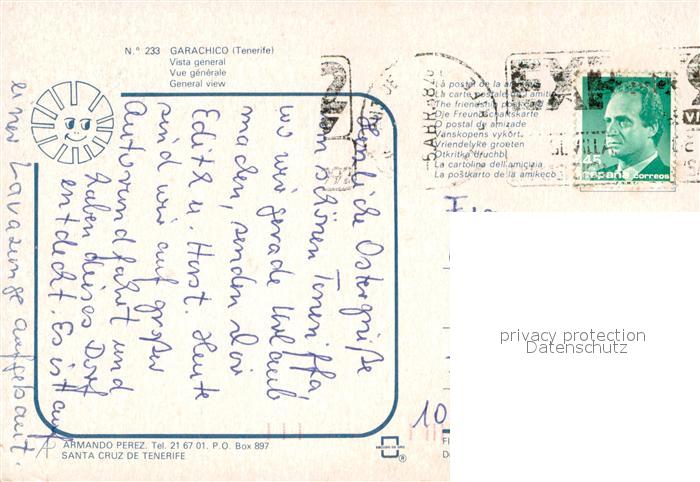 N.º 233 GARACHICO (Tenerife)
Vista general
Vue générale
General view
La postal de la amistad
La carte postale de l'amitié
The friendship postcard
Die Freundschaftskarte
O postal de amizade
Vänskopens vykort
Vriendelyke groeten
Otkritka druchbi
La cartolina dell'amicizia
La poŝtkarto de la amikeco
5 ABR
SEVILLA
45
españa correos
Herzliche Ostergrüße
vom schönen Teneriffa,
wo wir gerade Urlaub
machen, senden Dir
Edith u. Horst. Heute
sind wir auf großer
Autorundfahrt und
haben dieses Dorf
entdeckt. Es ist auf
einer Lavazunge aufgebaut.
10
privacy protection
Datenschutz
ARMANDO PEREZ. Tel. 21 67 01. P.O. Box 897
SANTA CRUZ DE TENERIFE